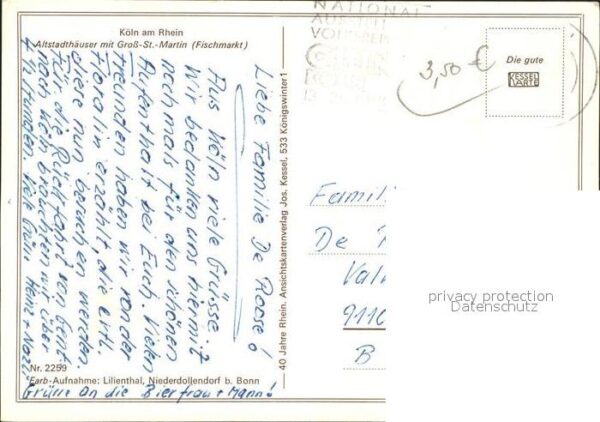 Köln am Rhein
Altstadthäuser mit Groß-St.-Martin (Fischmarkt)
Liebe Familie De Roose!
Aus Köln viele Grüsse
Wir bedanken uns hiermit
nochmals für den schönen
Aufenthalt bei Euch. Vielen
Freunden haben wir von der
Floralin erzählt, die evtl.
diese nun besuchen werden.
Für die Rückfahrt von Gent
nach Köln brauchten wir über
4 Stunden. Viele Grüße Heinz
Grüsse an die Bierfrau + Mann!
Nr. 2259
Farb-Aufnahme: Lilienthal, Niederdollendorf b. Bonn
40 Jahre Rhein. Ansichtskartenverlag Jos. Kessel, 533 Königswinter 1
NATIONAL
3,50 €
Die gute
KESSEL
KARTE
Famili
De
9110
B
privacy protection
Datenschutz